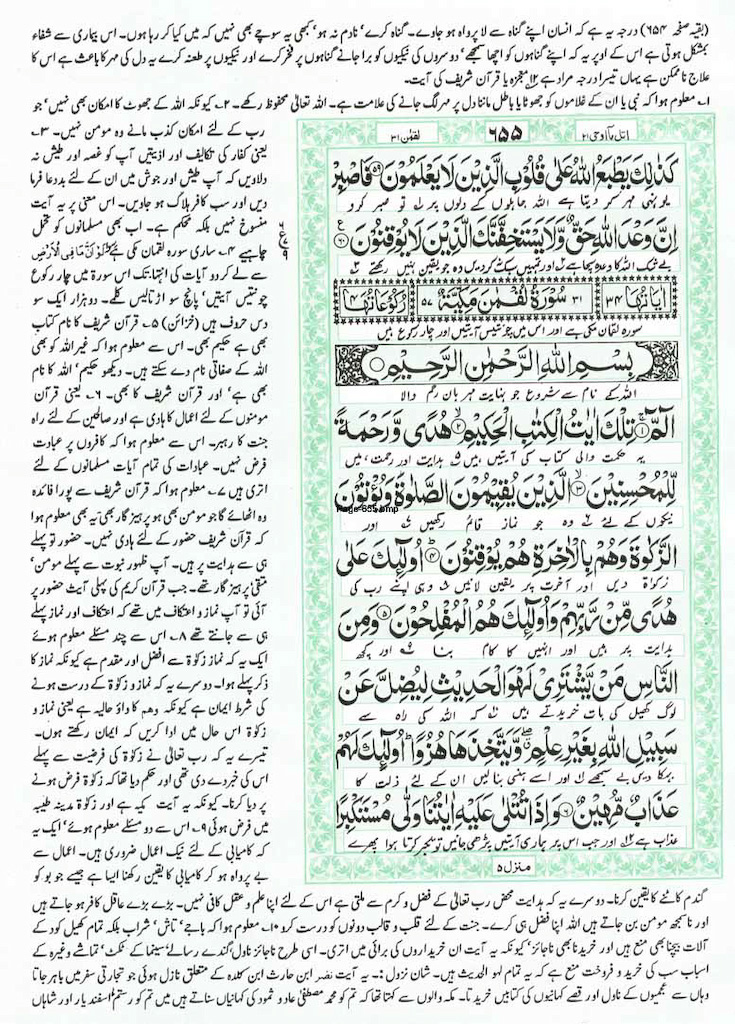 (بقیہ صفحہ ۶۵۴) درجہ یہ ہے کہ انسان اپنے گناہ سے لا پرواہ ہو جاوے۔ گناہ کرے، نادم نہ ہو، کبھی یہ سوچے بھی نہیں کہ میں کیا کر رہا ہوں۔ اس بیماری سے شفاء
بمشکل ہوتی ہے اس کے اوپر یہ کہ اپنے گناہوں کو اچھا سمجھے، دوسروں کی نیکیوں کو برا جانے گناہوں پر فخر کرے اور نیکیوں پر طعنہ کرے یہ دل کی مہر کا باعث ہے اس کا
علاج ناممکن ہے یہاں تیسرا درجہ مراد ہے ۱۲ معجزہ یا قرآن شریف کی آیت۔
۱۔ معلوم ہوا کہ نبی یا ان کے غلاموں کو جھوٹا یا باطل ماننا دل پر مہر لگ جانے کی علامت ہے۔ اللہ تعالٰی محفوظ رکھے۔ ۲۔ کیونکہ اللہ کے جھوٹ کا امکان بھی نہیں، جو
رب کے لئے امکان کذب مانے وہ مومن نہیں۔ ۳۔
یعنی کفار کی تکالیف اور اذیتیں آپ کو غصہ اور طیش نہ
دلاویں کہ آپ طیش اور جوش میں ان کے لئے بددعا فرما
دیں اور سب کافر ہلاک ہو جاویں۔ اس معنی پر یہ آیت
منسوخ نہیں بلکہ محکم ہے۔ اب بھی مسلمانوں کو تحمل
چاہیے ۴۔ ساری سورہ لقمان مکی ہے
سے لے کر دو آیات کی انتہا تک اس سورۃ میں چار رکوع
چونتیس آیتیں، پانچ سو اڑتالیس کلمے۔ دو ہزار ایک سو
دس حروف ہیں (خزائن) ۵۔ قرآن شریف کا نام کتاب
بھی ہے حکیم بھی۔ اس سے معلوم ہوا کہ غیر اللہ کو بھی
اللہ کے صفاتی نام دے سکتے ہیں۔ دیکھو حکیم، اللہ کا نام
بھی ہے، اور قرآن شریف کا بھی۔ ۶۔ یعنی قرآن
مومنوں کے لئے اعمال کا ہادی ہے اور صالحین کے لئے راہ
جنت کا رہبر۔ اس سے معلوم ہوا کہ کافروں پر عبادت
فرض نہیں۔ عبادات کی تمام آیات مسلمانوں کے لئے
اتری ہیں ۷۔ معلوم ہوا کہ قرآن شریف سے پورا فائدہ
وہ اٹھائے گا جو مومن بھی ہو پرہیز گار بھی یہ بھی معلوم ہوا
کہ قرآن شریف حضور کے لئے ہادی نہیں۔ حضور تو پہلے
ہی سے ہدایت پر ہیں۔ آپ ظہور نبوت سے پہلے مومن،
متقی پرہیز گار تھے۔ جب قرآن کریم کی پہلی آیت حضور پر
آئی تو آپ نماز و اعتکاف میں تھے کہ اعتکاف اور نماز پہلے
ہی سے جانتے تھے ۸۔ اس سے چند مسئلے معلوم ہوئے
ایک یہ کہ نماز زکوٰۃ سے افضل اور مقدم ہے کیونکہ نماز کا
ذکر پہلے ہوا۔ دوسرے یہ کہ نماز و زکوٰۃ کے درست ہونے
کی شرط ایمان ہے کیونکہ وھم کا واؤ حالیہ ہے یعنی نماز و
زکوٰۃ اس حال میں ادا کریں کہ ایمان رکھتے ہوں۔
تیسرے یہ کہ رب تعالٰی نے زکوٰۃ کی فرضیت سے پہلے
اس کی خبر دے دی تھی اور حکم دیا تھا کہ زکوٰۃ فرض ہونے
پر دیا کرنا۔ کیونکہ یہ آیت مکیہ ہے اور زکوٰۃ مدینہ طیبہ
میں فرض ہوئی ۹۔ اس سے دو مسئلے معلوم ہوئے، ایک یہ
کہ کامیابی کے لئے نیک اعمال ضروری ہیں۔ اعمال سے
بے پرواہ ہو کر کامیابی کا یقین رکھنا ایسا ہی ہے جیسے جو بو کر
اتل مآ اوحی ۲۱ ۶۵۵ لقمٰن ۳۱
كَذٰلِكَ يَطْبَعُ اللّٰهُ عَلٰى قُلُوْبِ الَّذِيْنَ لَا يَعْلَمُوْنَ ۵۹ فَاصْبِرْ
یونہی مہر کر دیتا ہے اللہ جاہلوں کے دلوں پر تو صبر کرو
اِنَّ وَعْدَ اللّٰهِ حَقٌّ وَّلَا يَسْتَخِفَّنَّكَ الَّذِيْنَ لَا يُوْقِنُوْنَ ۶۰
بے شک اللہ کا وعدہ سچا ہے اور تمہیں سبک نہ کردیں وہ جو یقین نہیں رکھتے
اٰیاتُہا ۳۴ ۳۱ سُوْرَةُ لُقْمٰنَ مَكِّيَّةٌ ۵۷ رُکُوْعَاتُہا ۴
سورہ لقمان مکی ہے اور اس میں چونتیس آیتیں اور چار رکوع ہیں
بِسْمِ اللّٰهِ الرَّحْمٰنِ الرَّحِيْمِ
اللہ کے نام سے شروع جو نہایت مہربان رحم والا
الٓمّٓ ۱ تِلْكَ اٰيٰتُ الْكِتٰبِ الْحَكِيْمِ ۲ هُدًى وَّرَحْمَةً
یہ حکمت والی کتاب کی آیتیں ہیں ہدایت اور رحمت ہیں
لِّلْمُحْسِنِيْنَ ۳ الَّذِيْنَ يُقِيْمُوْنَ الصَّلٰوةَ وَيُؤْتُوْنَ
Page-655.bmp
نیکوں کے لئے وہ جو نماز قائم رکھیں اور
الزَّكٰوةَ وَهُمْ بِالْاٰخِرَةِ هُمْ يُوْقِنُوْنَ ۴ اُولٰٓئِكَ عَلٰى
زکوٰۃ دیں اور آخرت پر یقین لائیں وہی اپنے رب کی
هُدًى مِّنْ رَّبِّهِمْ وَاُولٰٓئِكَ هُمُ الْمُفْلِحُوْنَ ۵ وَمِنَ
ہدایت پر ہیں اور انہیں کا کام بنا اور کچھ
النَّاسِ مَنْ يَّشْتَرِيْ لَهْوَ الْحَدِيْثِ لِيُضِلَّ عَنْ
لوگ کھیل کی بات خریدتے ہیں کہ اللہ کی راہ سے
سَبِيْلِ اللّٰهِ بِغَيْرِ عِلْمٍ وَّيَتَّخِذَهَا هُزُوًا اُولٰٓئِكَ لَهُمْ
بہکا دیں بے سمجھے اور اسے ہنسی بنالیں ان کے لئے ذلت کا
عَذَابٌ مُّهِيْنٌ ۶ وَاِذَا تُتْلٰى عَلَيْهِ اٰيٰتُنَا وَلّٰى مُسْتَكْبِرًا
عذاب ہے اور جب اس پر ہماری آیتیں پڑھی جائیں تو تکبر کرتا ہوا پھرے
منزل ۵
گندم کاٹنے کا یقین کرنا۔ دوسرے یہ کہ ہدایت محض رب تعالٰی کے فضل و کرم سے ملتی ہے اس کے لئے اپنا علم و عقل کافی نہیں۔ بڑے بڑے عاقل کافر ہو جاتے ہیں
اور ناسمجھ مومن بن جاتے ہیں اللہ اپنا فضل ہی کرے۔ جنت کے لئے قلب و قالب دونوں کو درست کرو ۱۰۔ معلوم ہوا کہ باجے، تاش، شراب بلکہ تمام کھیل کود کے
آلات بیچنا بھی منع ہیں اور خریدنا بھی ناجائز، کیونکہ یہ آیت ان خریداروں کی برائی میں اتری۔ اسی طرح ناجائز ناول گندے رسالے سینما کے ٹکٹ، تماشے وغیرہ کے
اسباب سب کی خرید و فروخت منع ہے کہ یہ تمام لہو الحدیث ہیں۔ شان نزول :۔ یہ آیت نضر ابن حارث ابن کلدہ کے متعلق نازل ہوئی جو تجارتی سفر میں باہر جاتا
وہاں سے عجمیوں کے ناول اور قصے کہانیوں کی کتابیں خرید تا۔ مکہ والوں سے کہتا تھا کہ تم کو محمد مصطفٰی عاد و ثمود کی کہانیاں سناتے ہیں میں تم کو رستم اسفند یار اور شاہان